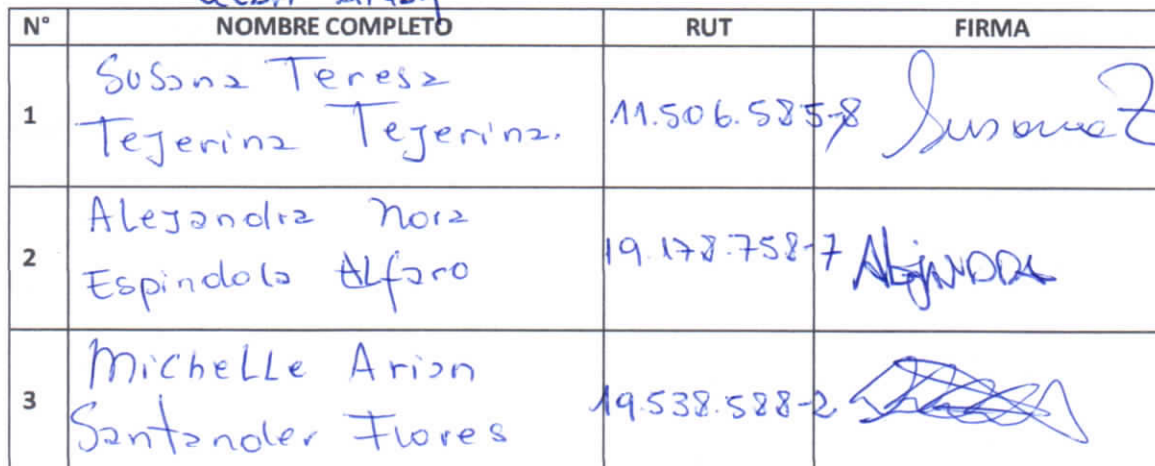 N° NOMBRE COMPLETO RUT FIRMA
1 Susana Teresa
Tejerina Tejerina. 11.506.585-8 Susana
2 Alejandra Nora
Espindola Alfaro 19.178.758-7 Alejandra
3 Michelle Arian
Santander Flores 19.538.588-2